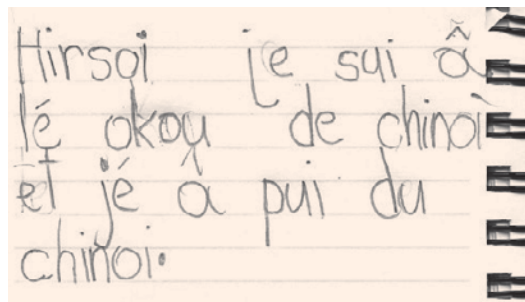 Hirsoi je sui â
lé okou de chinoi
et jé â pui du
chinoi.